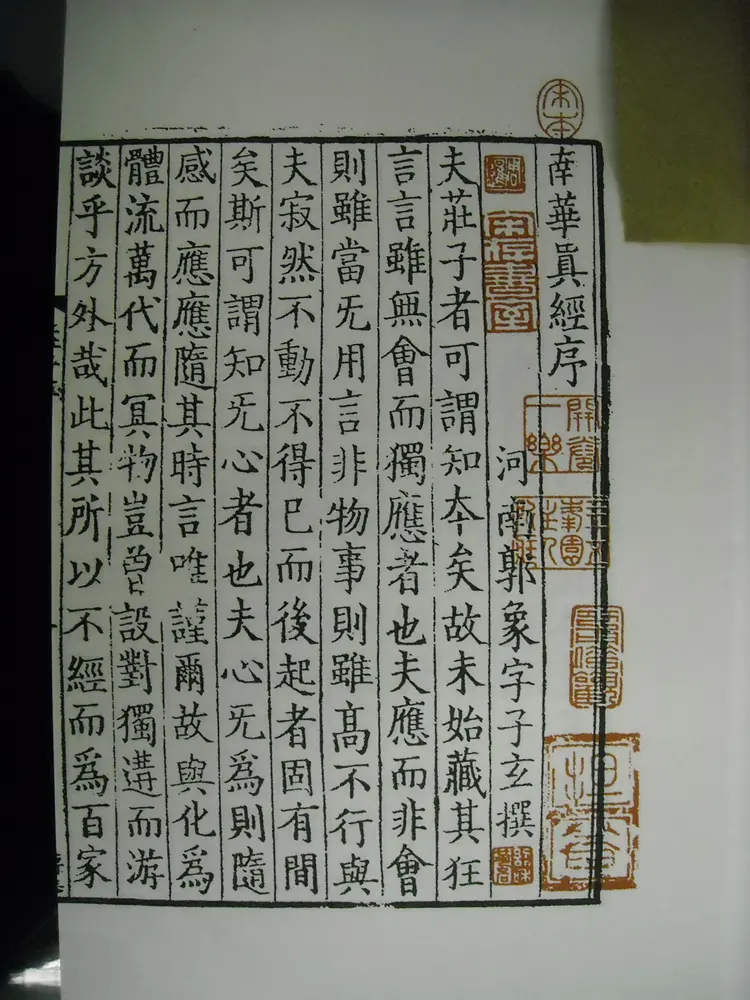 南華真經序
河南郭象字子玄撰
夫莊子者可謂知夲矣故未始藏其狂
言言雖無會而獨應者也夫應而非會
則雖當无用言非物事則雖高不行與
夫寂然不動不得已而後起者固有間
矣斯可謂知无心者也夫心无為則隨
感而應應隨其時言唯謹爾故與化為
體流萬代而冥物豈曾設對獨遘而游
談乎方外哉此其所以不經而為百家
宋本
宋存書室
開卷一樂